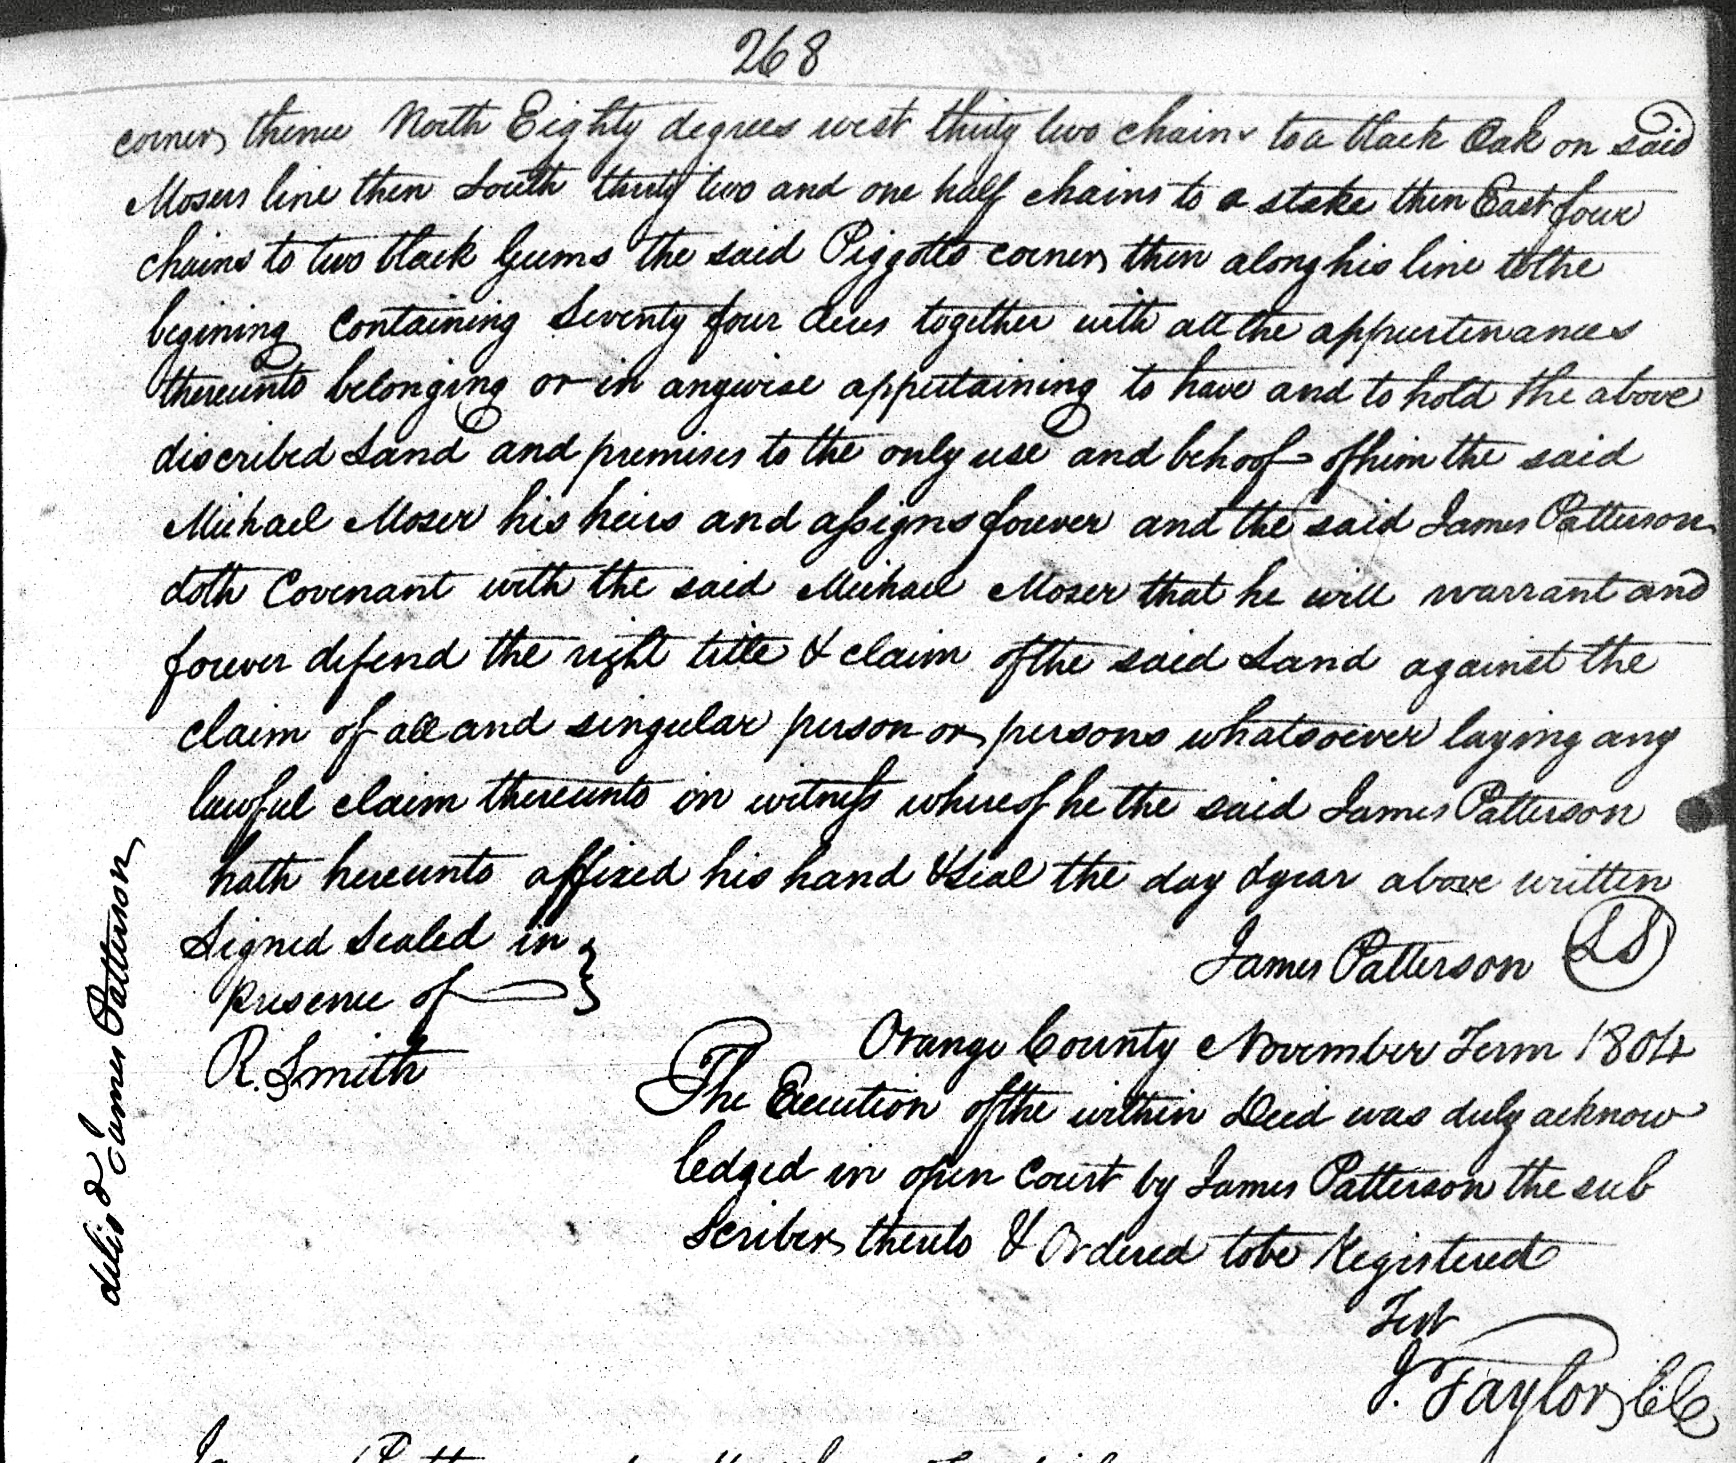 268
corner, thence North Eighty degrees west thirty two chains to a black Oak on said
Mosers line then South thirty two and one half chains to a stake then East four
chains to two black Gums the said Piggotts corner, then along his line to the
begining Containing Seventy four Acres together with all the appurtenances
thereunto belonging or in anywise appertaining to have and to hold the above
discribed Land and premises to the only use and behoof of him the said
Michael Moser his heirs and assigns forever and the said James Patterson
doth Covenant with the said Michael Moser that he will warrant and
forever defend the right title & claim of the said Land against the
claim of all and singular person or persons whatsoever laying any
lawful claim thereunto in witness whereof he the said James Patterson
hath hereunto affixed his hand & Seal the day & year above written
Signed Sealed in }
presence of
James Patterson LS
R. Smith
Orange County November Term 1804
The Execution of the within Deed was duly acknow
ledged in open Court by James Patterson the sub
scriber, thereto & Ordered to be Registered
Test
J. Taylor, CC
delivd James Patterson